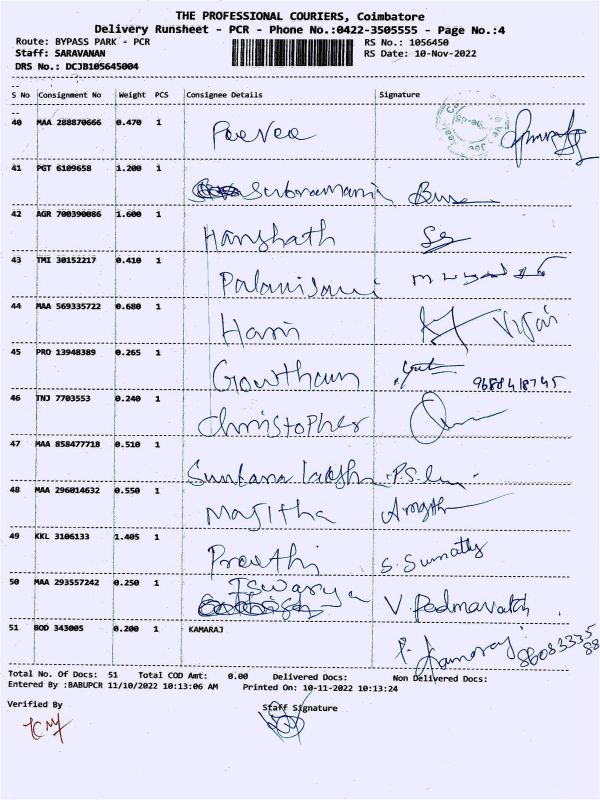 THE PROFESSIONAL COURIERS, Coimbatore
Delivery Runsheet - PCR - Phone No.:0422-3505555 - Page No.:4
Route: BYPASS PARK - PCR RS No.: 1056450
Staff: SARAVANAN RS Date: 10-Nov-2022
DRS No.: DCJB105645004
S No Consignment No Weight PCS Consignee Details Signature
40 MAA 288870666 0.470 1
41 PGT 6109658 1.200 1 Subramani
42 AGR 700390086 1.600 1 Harshath
43 TMI 30152217 0.410 1 Palanisami
44 MAA 569335722 0.680 1 Hari
45 PRO 13948389 0.265 1 Gowtham 9688418745
46 TNJ 7703553 0.240 1 Christopher
47 MAA 858477718 0.510 1
48 MAA 296014632 0.550 1 Majitha
49 KKL 3106133 1.405 1 Preethi S. Sumathy
50 MAA 293557242 0.250 1 Iswarya V. Padmavathi
51 BOD 343005 0.200 1 KAMARAJ
Total No. Of Docs: 51 Total COD Amt: 0.00 Delivered Docs: Non Delivered Docs:
Entered By :BABUPCR 11/10/2022 10:13:06 AM Printed On: 10-11-2022 10:13:24
Verified By Staff Signature